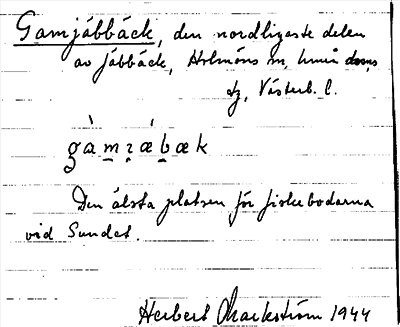 Gamjäbbäck, den nordligaste delen
av Jäbbäck, Holmöns sn, Umeå doms
tg, Västerb. l.
gàmɪ̯ǽbæk
Den älsta platsen för fiskebodarna
vid Sundet.
Herbert Markström 1944